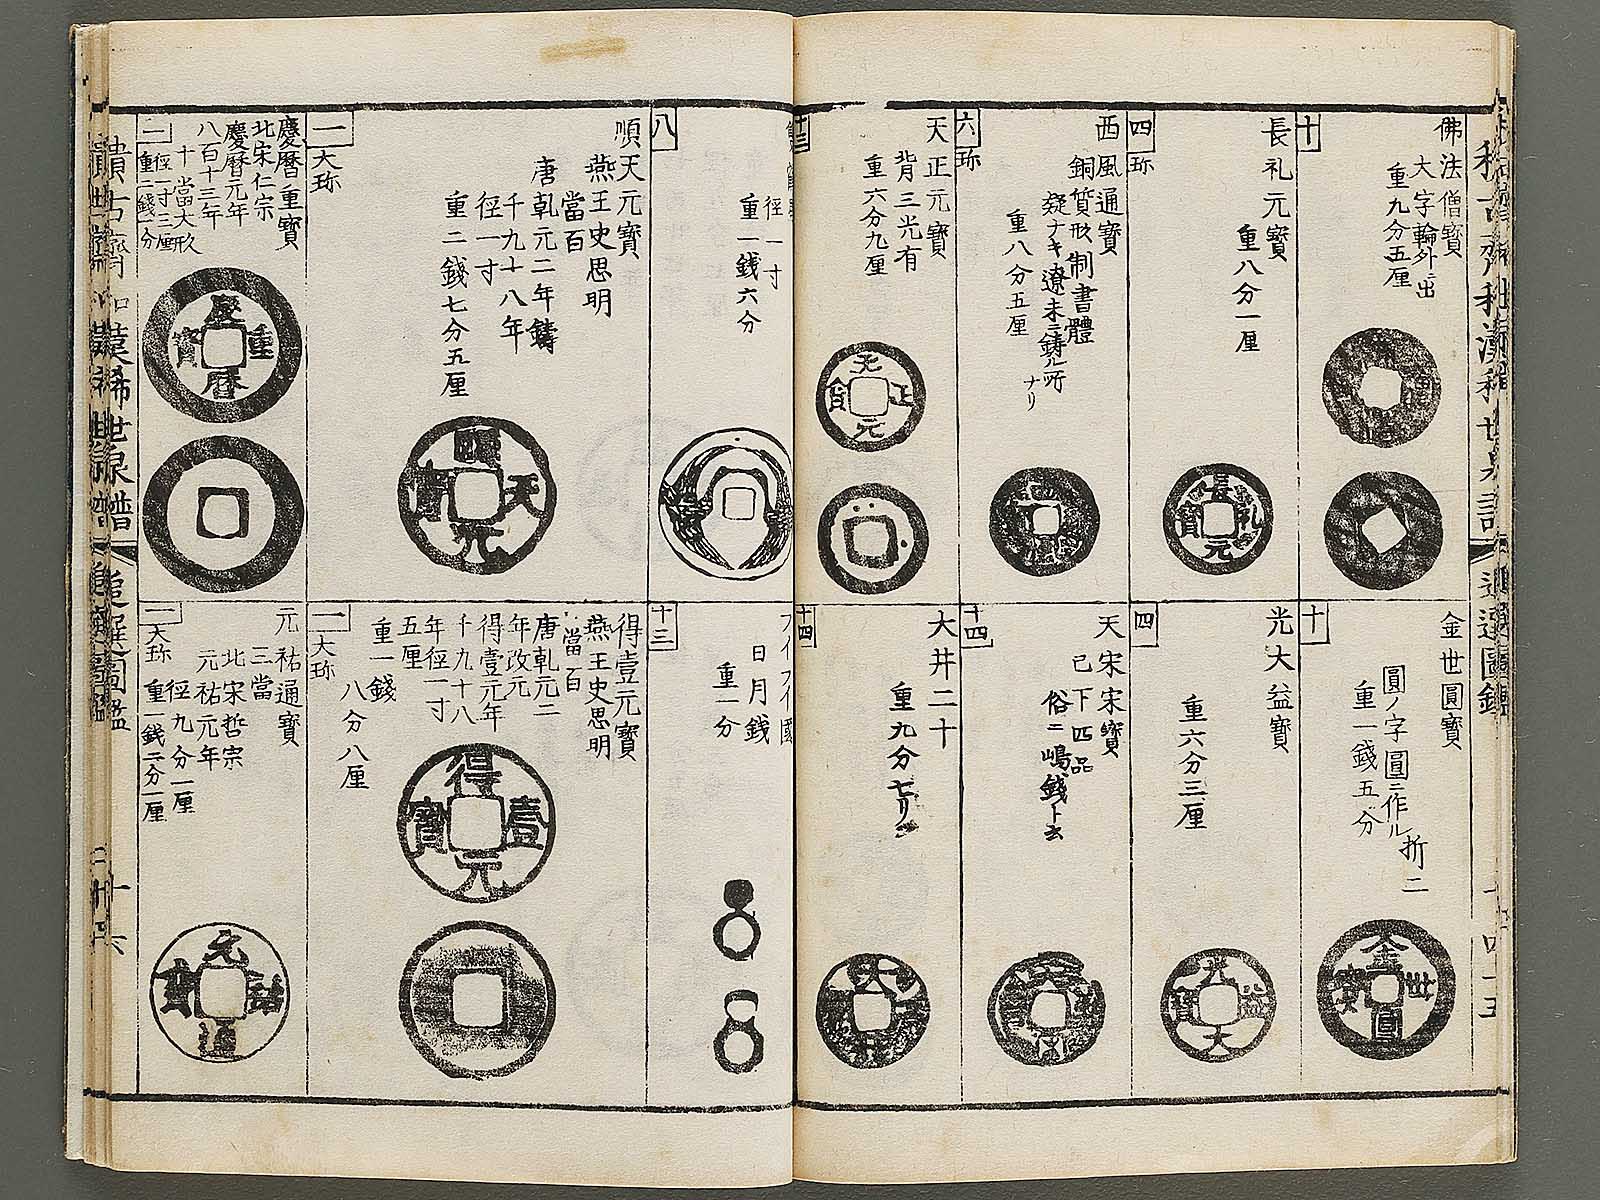 佛法僧寶
大字輪外ニ出
重九分五厘
十
長礼元寶
重八分一厘
四
珎
西風通寶
銅質形制書體
疑ナキ遼未ニ鋳ル所
ナリ
重八分五厘
六
珎
天正元寶
背三光有
重六分九厘
十三
金世圓寶
圓ノ字圓ニ作ル
折二
重一錢五分
十
光大益寶
重六分三厘
四
天宋宋寶
已下四品
俗ニ嶋錢ト云
十四
大井二十
重九分七リ
十四
徑一寸
重一錢六分
八
順天元寶
燕王史思明
當百
唐乹元二年鑄
千九十八年
徑一寸
重二錢七分五厘
一
大珎
慶暦重寶
北宋仁宗
慶暦元年
八百十三年
十當大形
徑一寸三厘
重二錢一分
一
日月錢
重一分
十三
得壹元寶
燕王史思明
當百
唐乹元二
年改元
得壹元年
千九十八
年徑一寸
五厘
重一錢
八分八厘
一
大珎
元祐通寶
三當
北宋哲宗
元祐元年
徑九分一厘
重一錢二分一厘
一
大珎
漢稀世泉譜
十六